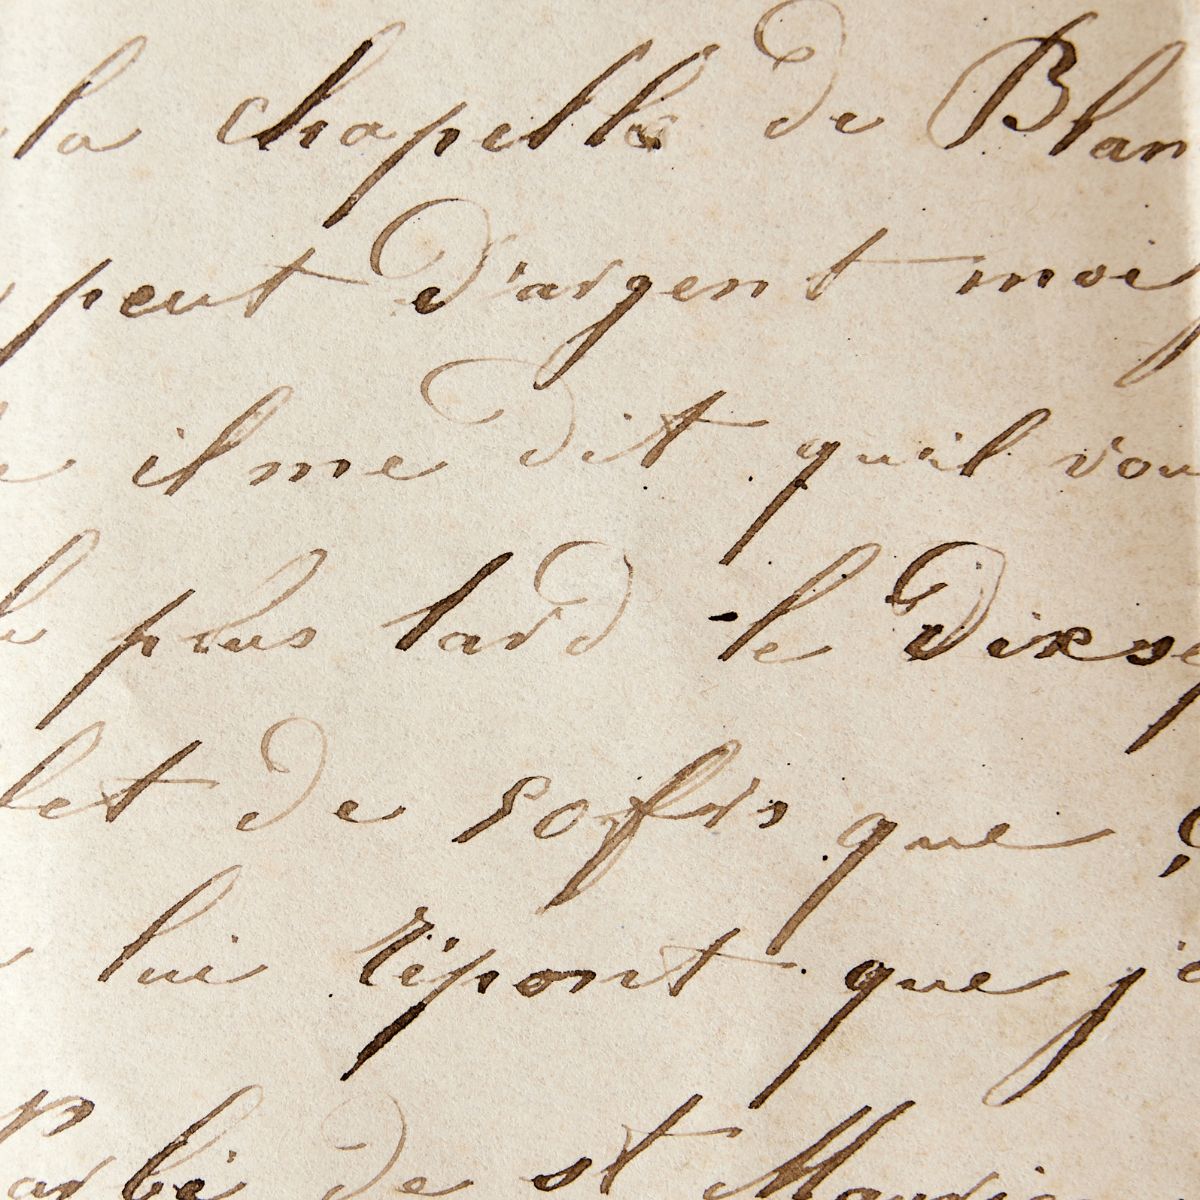 la chapelle de Blan
peut d'argent moi
il me dit qu'il vou
plus tard le dixsep
let de 50 frs que
lui répont que je
de st Mauri